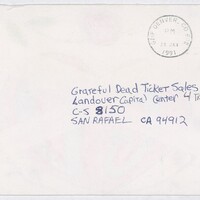 DENVER, CO
PM
1991
Grateful Dead Ticket Sales
Landover Capital Center 4
C-S 8150
SAN RAFAEL CA 94912